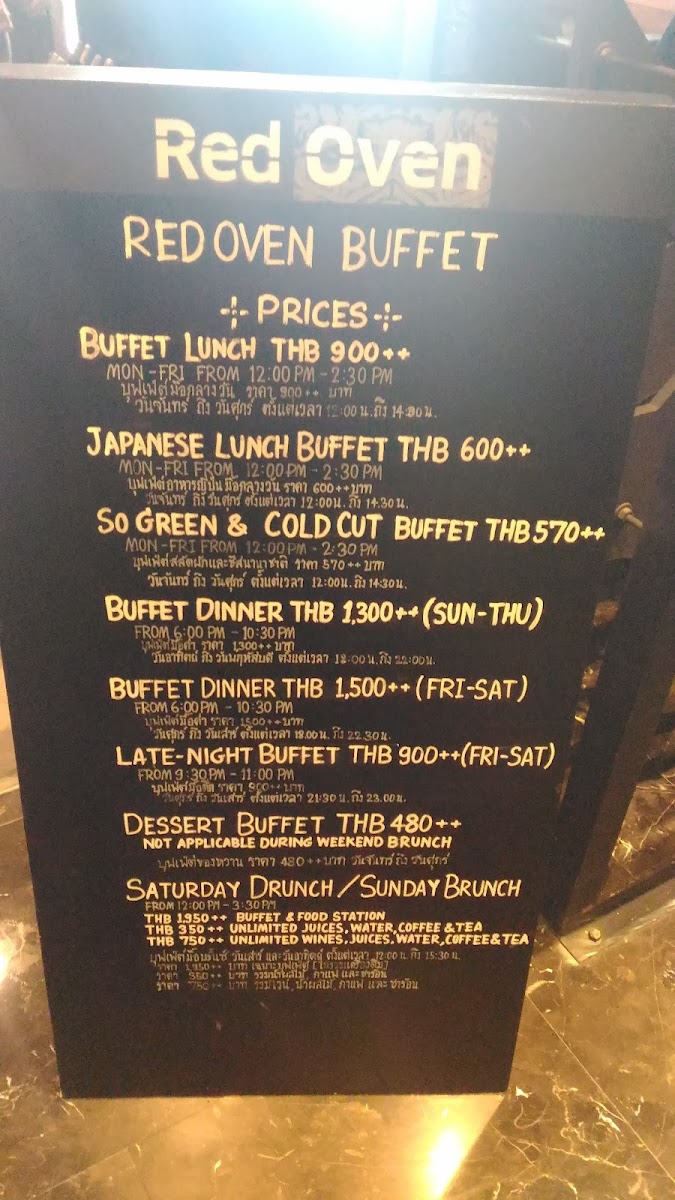 Red Oven
RED OVEN BUFFET
PRICES
BUFFET LUNCH THB 900++
MON-FRI FROM 12:00 PM - 2:30 PM
บุฟเฟ่ต์มื้อกลางวัน ราคา 900++ บาท
วันจันทร์ ถึง วันศุกร์ ตั้งแต่เวลา 12:00 น. ถึง 14:30 น.
JAPANESE LUNCH BUFFET THB 600++
MON-FRI FROM 12:00 PM - 2:30 PM
บุฟเฟ่ต์อาหารญี่ปุ่นมื้อกลางวัน ราคา 600++ บาท
วันจันทร์ ถึง วันศุกร์ ตั้งแต่เวลา 12:00 น. ถึง 14:30 น.
SO GREEN & COLD CUT BUFFET THB 570++
MON-FRI FROM 12:00 PM - 2:30 PM
บุฟเฟ่ต์สลัดผักและชีสนานาชาติ ราคา 570++ บาท
วันจันทร์ ถึง วันศุกร์ ตั้งแต่เวลา 12:00 น. ถึง 14:30 น.
BUFFET DINNER THB 1,300++ (SUN-THU)
FROM 6:00 PM - 10:30 PM
บุฟเฟ่ต์มื้อค่ำ ราคา 1,300++ บาท
วันอาทิตย์ ถึง วันพฤหัสบดี ตั้งแต่เวลา 18:00 น. ถึง 22:00 น.
BUFFET DINNER THB 1,500++ (FRI-SAT)
FROM 6:00 PM - 10:30 PM
บุฟเฟ่ต์มื้อค่ำ ราคา 1500++ บาท
วันศุกร์ ถึง วันเสาร์ ตั้งแต่เวลา 18.00 น. ถึง 22.30 น.
LATE-NIGHT BUFFET THB 900++ (FRI-SAT)
FROM 9:30 PM - 11:00 PM
บุฟเฟ่ต์มื้อดึก ราคา 900++ บาท
วันศุกร์ ถึง วันเสาร์ ตั้งแต่เวลา 21:30 น. ถึง 23.00 น.
DESSERT BUFFET THB 480++
NOT APPLICABLE DURING WEEKEND BRUNCH
บุฟเฟ่ต์ของหวาน ราคา 480++ บาท วันจันทร์ ถึง วันศุกร์
SATURDAY DRUNCH / SUNDAY BRUNCH
FROM 12:00 PM - 3:30 PM
THB 1,950++ BUFFET & FOOD STATION
THB 350++ UNLIMITED JUICES, WATER, COFFEE & TEA
THB 750++ UNLIMITED WINES, JUICES, WATER, COFFEE & TEA
บุฟเฟ่ต์มื้อบรันช์ วันเสาร์ และวันอาทิตย์ ตั้งแต่เวลา 12:00 น. ถึง 15:30 น.
ราคา 1,950++ บาท เฉพาะบุฟเฟ่ต์
ราคา 350++ บาท รวมน้ำผลไม้ กาแฟ และ ชาร้อน
ราคา 750++ บาท รวมไวน์, น้ำผลไม้, กาแฟ และ ชาร้อน